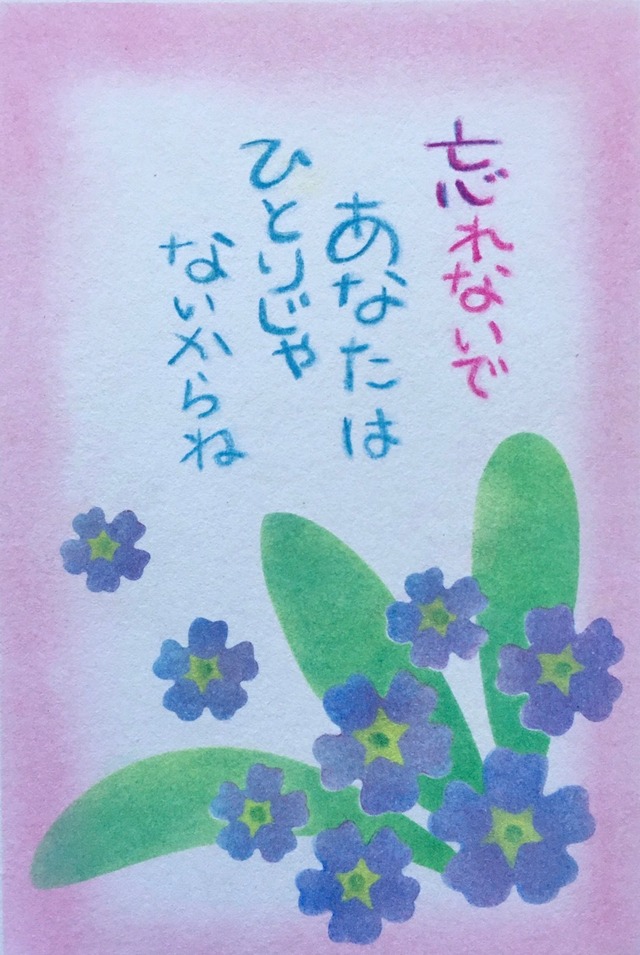 忘れないで
あなたは
ひとりじゃ
ないからね